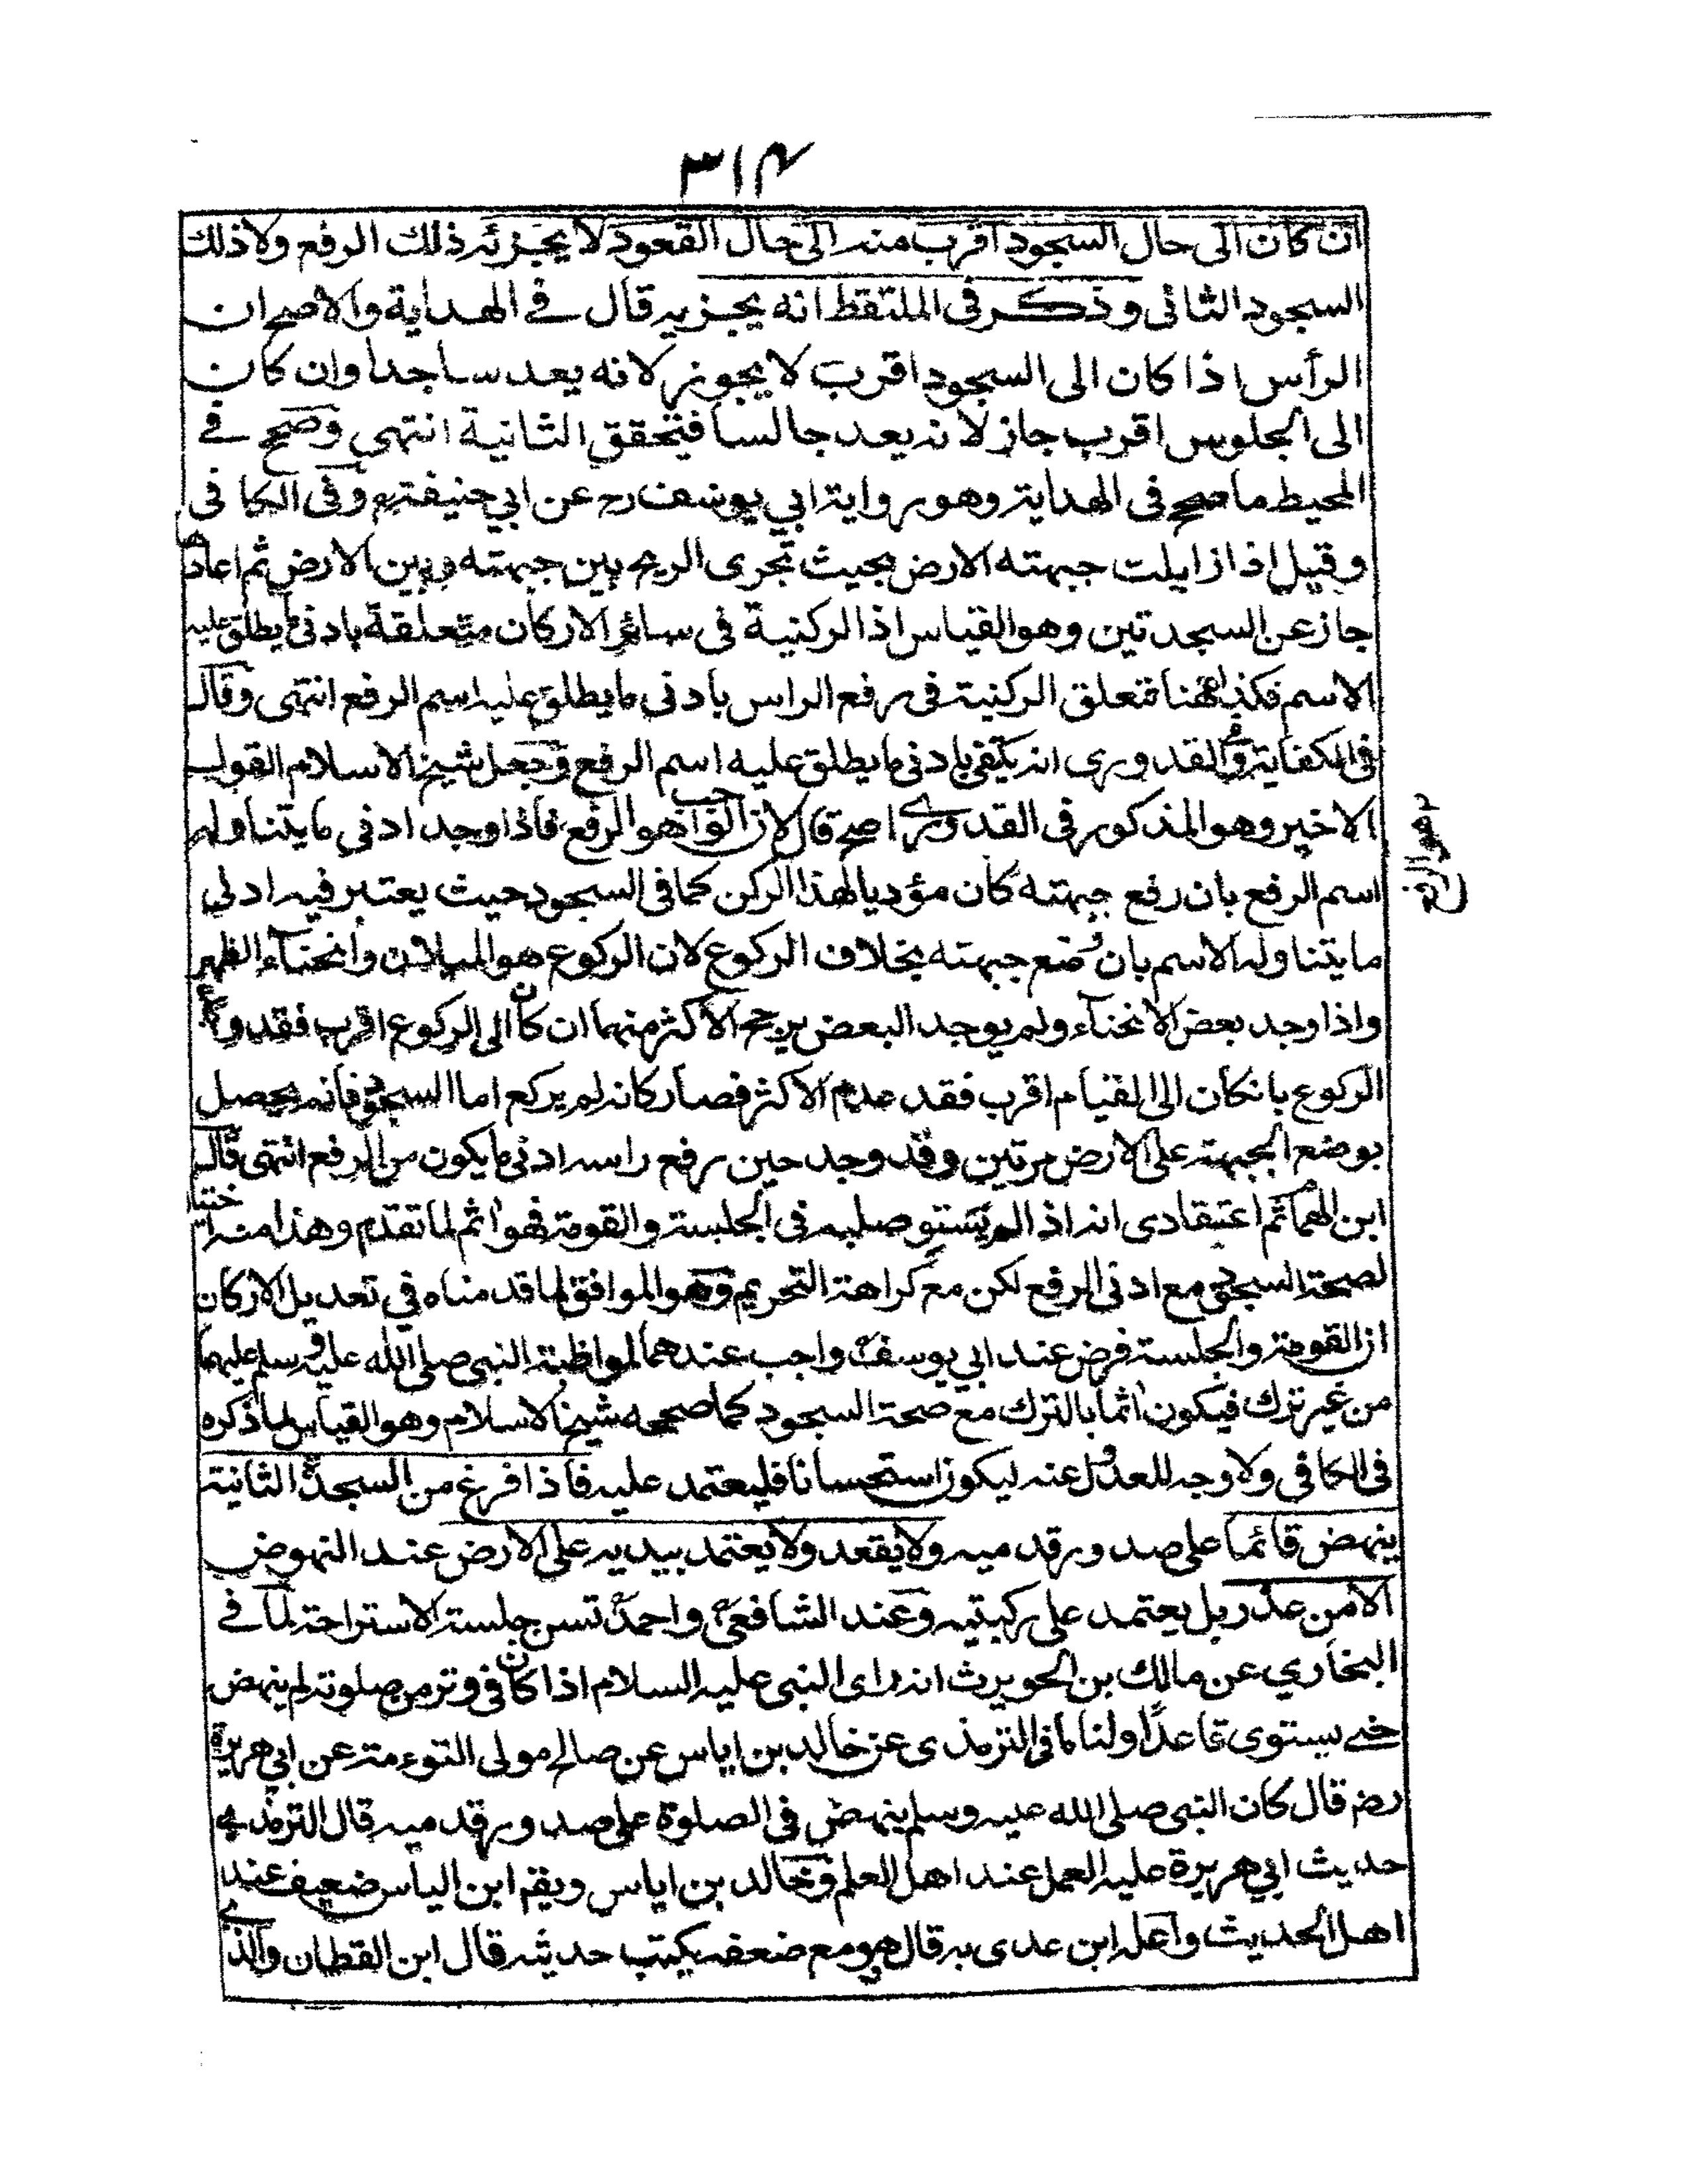 ٣١٤
ان كان الى حال السجود اقرب منه الى حال القعود لا يجزئه ذلك الرفع ولا ذلك
السجود الثانى وذكر فى الملتقط انه يجزيه قال فى الهداية والاصح ان
الرأس اذا كان الى السجود اقرب لا يجوز لانه يعد ساجدا وان كان
الى الجلوس اقرب جاز لانه يعد جالسا فيتحقق الثانية انتهى وصحح فى
المحيط ما صحح فى الهداية وهو رواية ابي يوسف رح عن ابي حنيفة رح وفى الكافى
وقيل اذا زايلت جبهته الارض بحيث تجرى الريح بين جبهته وبين الارض ثم اعادها
جاز عن السجدتين وهو القياس اذ الركنية فى سائر الاركان متعلقة بادنى ما يطلق عليه
الاسم فكذا ههنا تتعلق الركنية فى رفع الراس بادنى ما يطلق عليه اسم الرفع انتهى وقال
فى الكفاية وفى القدورى انه يكتفى بادنى ما يطلق عليه اسم الرفع وجعل شيخ الاسلام القول
الاخير وهو المذكور فى القدورى اصح قال لان الواجب هو الرفع فاذا وجد ادنى ما يتناوله
اسم الرفع بان رفع جبهته كان مؤديا لهذا الركن كما فى السجود حيث يعتبر فيه ادنى
ما يتناوله الاسم بان وضع جبهته بخلاف الركوع لان الركوع هو الميلان وانحناء الظهر
واذا وجد بعض الانحناء ولم يوجد البعض يرجح الاكثر منهما ان كان الى الركوع اقرب فقد وجد
الركوع بانكان الى القيام اقرب فقد عدم الاكثر فصار كانه لم يركع اما السجود فانه يحصل
بوضع الجبهة على الارض مرتين وقد وجد حين رفع راسه ادنى ما يكون من الرفع انتهى قال
ابن الهمام ثم اعتقادى انه اذا لم يستو صلبه فى الجلسة والقومة فهو اثم لما تقدم وهذا منه اختيار
لصحة السجود مع ادنى الرفع لكن مع كراهة التحريم وهو الموافق لما قدمناه في تعديل الاركان
ان القومة والجلسة فرض عند ابي يوسف واجب عندهما لمواظبة النبى صلى الله عليه وسلم عليهما
من غير ترك فيكون اثما بالترك مع صحة السجود كما صححه شيخ الاسلام وهو القياس لما ذكره
فى الكافي ولا وجه للعدول عنه ليكون استحسانا فليعتمد عليه فاذا فرغ من السجدة الثانية
ينهض قائما على صدور قدميه ولا يقعد ولا يعتمد بيديه على الارض عند النهوض
الا من عذر بل يعتمد على ركبتيه وعند الشافعى واحمد تسن جلسة الاستراحة لما فى
البخاري عن مالك بن الحويرث انه راى النبى عليه السلام اذا كان فى وتر من صلوته لم ينهض
حتى يستوى قاعدا ولنا ما فى الترمذى عن خالد بن اياس عن صالح مولى التوءمة عن ابي هريرة
رض قال كان النبى صلى الله عليه وسلم ينهض فى الصلوة على صدور قدميه قال الترمذي
حديث ابي هريرة عليه العمل عند اهل العلم وخالد بن اياس ويقم ابن الياس ضعيف عند
اهل الحديث واعله ابن عدى به قال هو مع ضعفه يكتب حديثه قال ابن القطان والذي